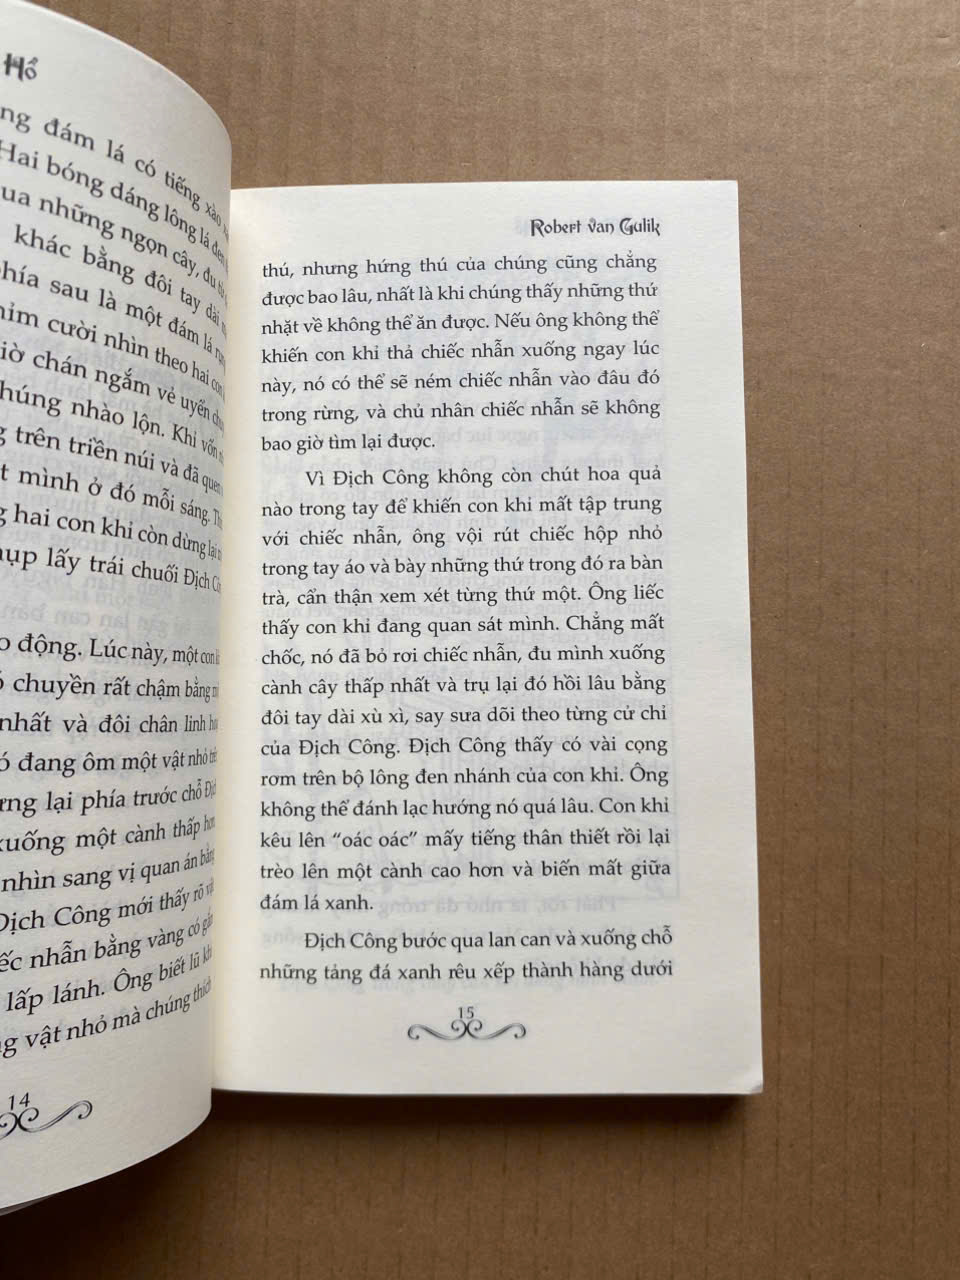 Hổ
ng đám lá có tiếng xào
Hai bóng dáng lông lá đen
ua những ngọn cây, đu
khác bằng đôi tay dài
phía sau là một đám lá
mỉm cười nhìn theo hai con
giờ chán ngắm vẻ uyển
chúng nhào lộn. Khỉ vốn
g trên triền núi và đã quen
t mình ở đó mỗi sáng.
g hai con khỉ còn dừng lại
hụp lấy trái chuối Địch
o động. Lúc này, một con
ó chuyền rất chậm bằng
nhất và đôi chân linh
ó đang ôm một vật nhỏ
ừng lại phía trước chỗ
xuống một cành thấp hơn
nhìn sang vị quan án bằng
Địch Công mới thấy rõ
iếc nhẫn bằng vàng có gắn
lấp lánh. Ông biết lũ
ng vật nhỏ mà chúng thích
14
Robert van Gulik
thú, nhưng hứng thú của chúng cũng chẳng
được bao lâu, nhất là khi chúng thấy những thứ
nhặt về không thể ăn được. Nếu ông không thể
khiến con khỉ thả chiếc nhẫn xuống ngay lúc
này, nó có thể sẽ ném chiếc nhẫn vào đâu đó
trong rừng, và chủ nhân chiếc nhẫn sẽ không
bao giờ tìm lại được.
Vì Địch Công không còn chút hoa quả
nào trong tay để khiến con khỉ mất tập trung
với chiếc nhẫn, ông vội rút chiếc hộp nhỏ
trong tay áo và bày những thứ trong đó ra bàn
trà, cẩn thận xem xét từng thứ một. Ông liếc
thấy con khỉ đang quan sát mình. Chẳng mất
chốc, nó đã bỏ rơi chiếc nhẫn, đu mình xuống
cành cây thấp nhất và trụ lại đó hồi lâu bằng
đôi tay dài xù xì, say sưa dõi theo từng cử chỉ
của Địch Công. Địch Công thấy có vài cọng
rơm trên bộ lông đen nhánh của con khỉ. Ông
không thể đánh lạc hướng nó quá lâu. Con khỉ
kêu lên “oác oác” mấy tiếng thân thiết rồi lại
trèo lên một cành cao hơn và biến mất giữa
đám lá xanh.
Địch Công bước qua lan can và xuống chỗ
những tảng đá xanh rêu xếp thành hàng dưới
15